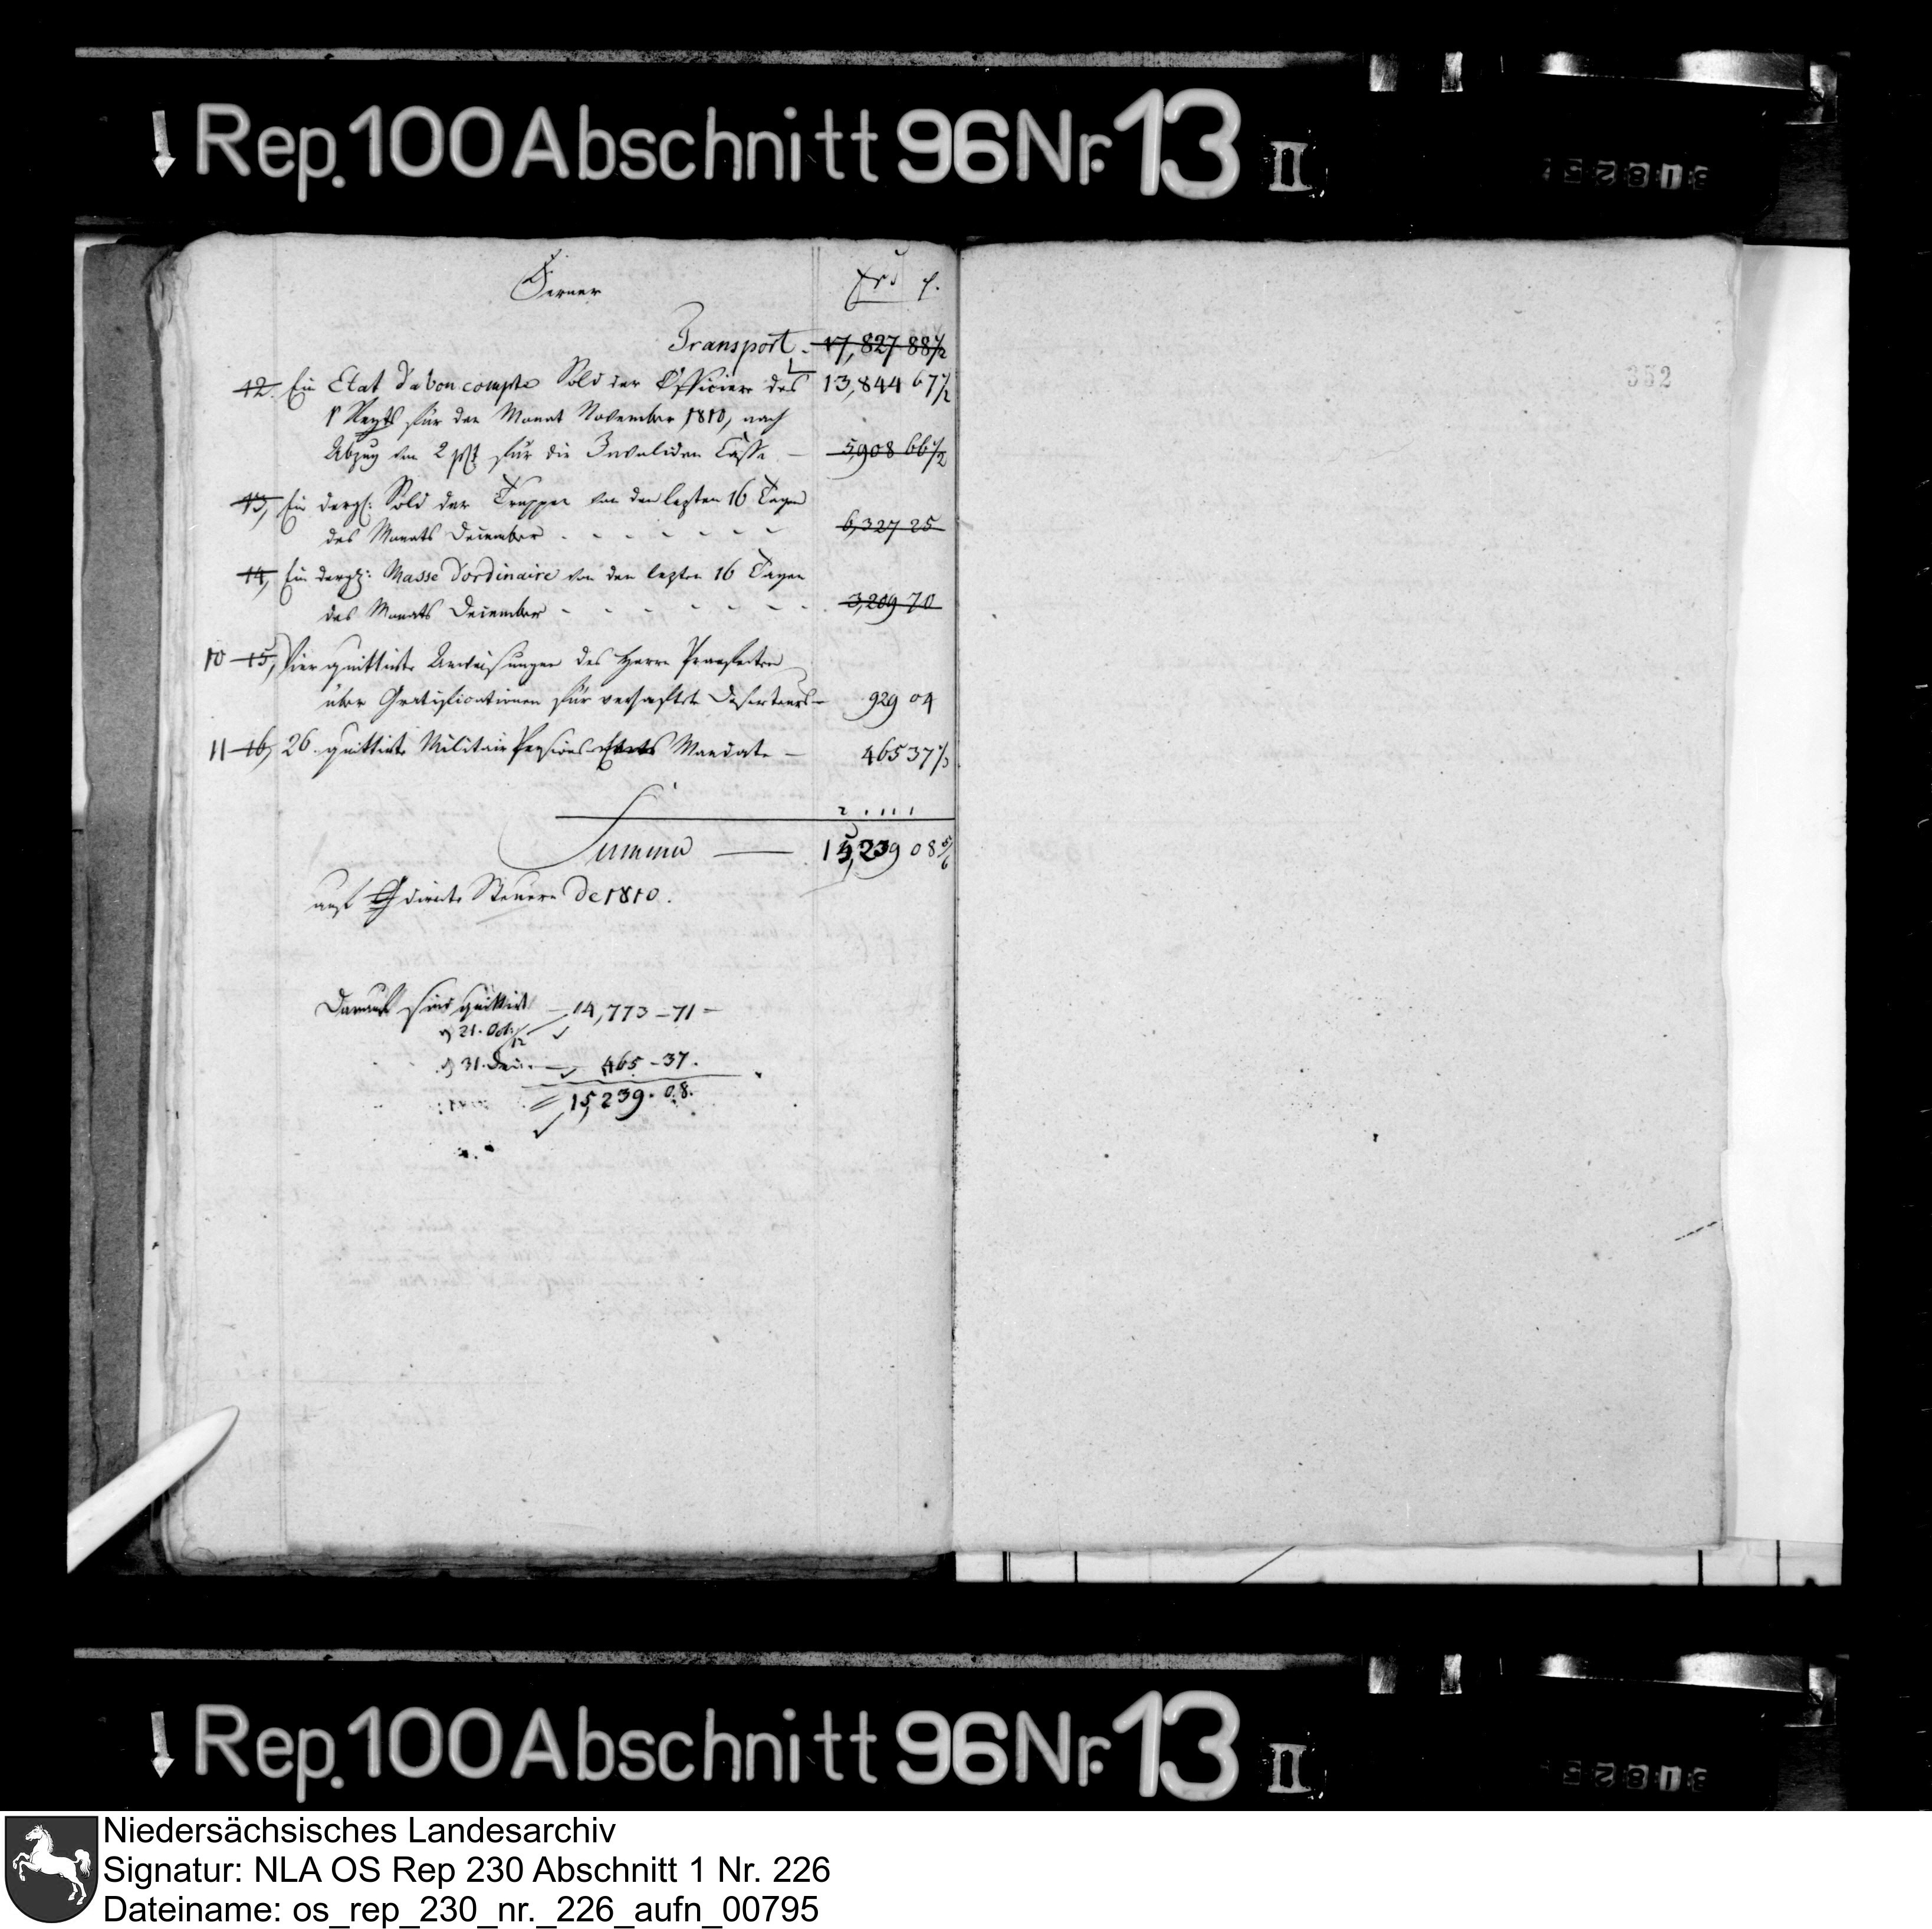 Rep. 100 Abschnitt 96 Nr. 13 II
Ferner
Transport - 17,827 88 1/2
13,844 67 1/2
12. Ein Etat d'abon compte Sold der Officiere des
1 Regts für den Monat November 1810, nach
Abzug von 2 pCt für die Invaliden Casse — 5,908 66 1/2
13, Ein dergl: Sold der Truppen von den lezten 16 Tagen
des Monats December - - - - - - 6,327 25
14, Ein dergl: Masse d'ordinaire von den lezten 16 Tagen
des Monats December - - - - - - - 3,209 70
10 15, Vier quittirte Anweisungen des Herrn Praefecten
über Gratificationen für verhaftete Deserteurs — 929 04
11 16, 26 quittirte Militair Pensions Etats Mandate — 465 37 1/3
Summa — 15,239 08 5/6
auf directe Steuern de 1810.
352
Darauf sind quittirt — 14,773 - 71 -
21. Oct.
31. Dec. — 465 - 37.
15,239. 08.
Rep. 100 Abschnitt 96 Nr. 13 II
Niedersächsisches Landesarchiv
Signatur: NLA OS Rep 230 Abschnitt 1 Nr. 226
Dateiname: os_rep_230_nr._226_aufn_00795